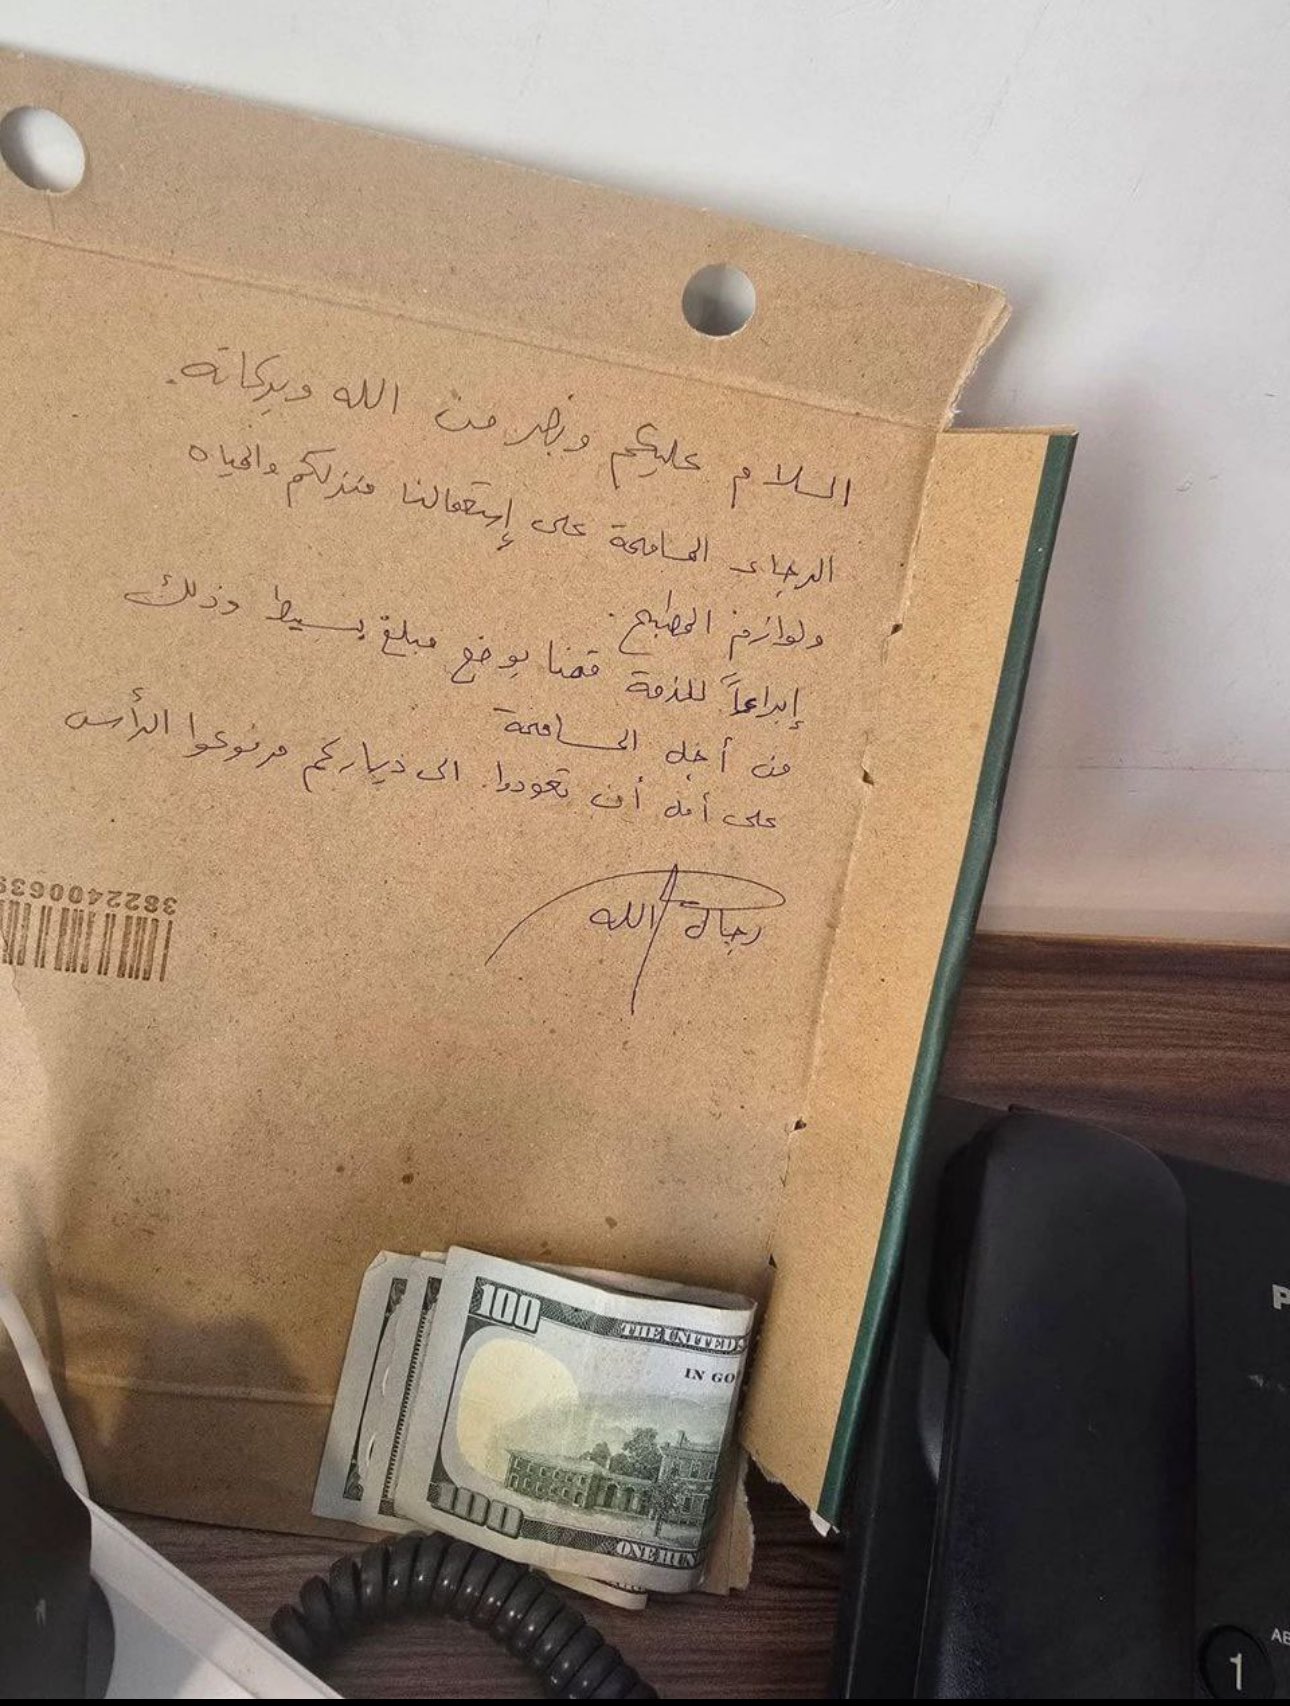 السلام عليكم ونصر من الله وبركاته.
الرجاء المسامحة على إستعمالنا منزلكم والمياه
ولوازم المطبخ.
إبراءاً للذمة قمنا بوضع مبلغ بسيط وذلك
من أجل المسامحة
على أمل أن تعودوا الى دياركم مرفوعوا الرأس
رجال الله
3822400639
100
THE UNITED
IN GO
100
ONE HUN
P
1
AB